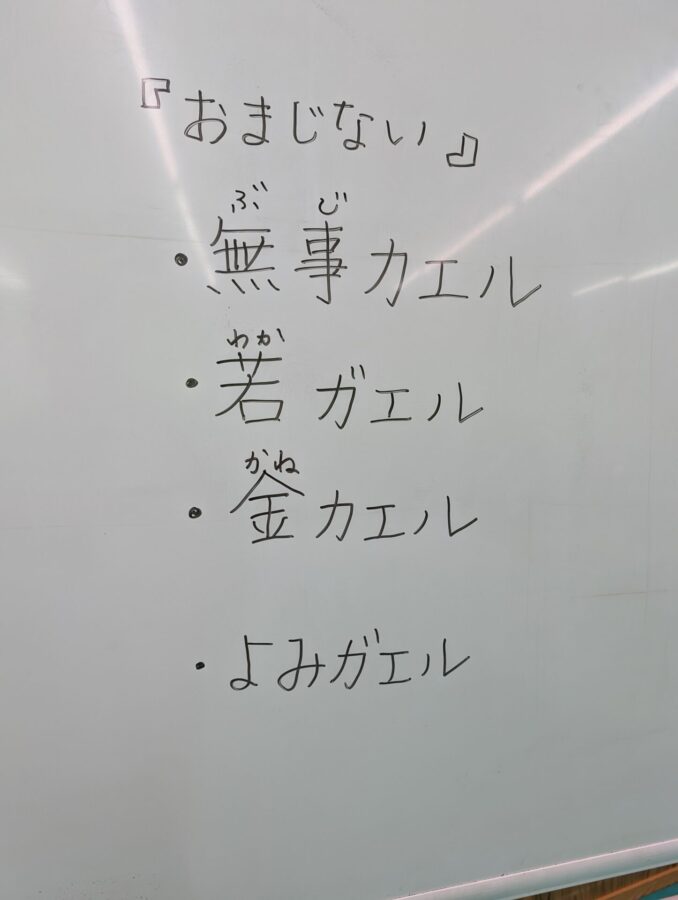 『おまじない』
ぶじ
・無事カエル
わか
・若ガエル
かね
・金カエル
・よみガエル